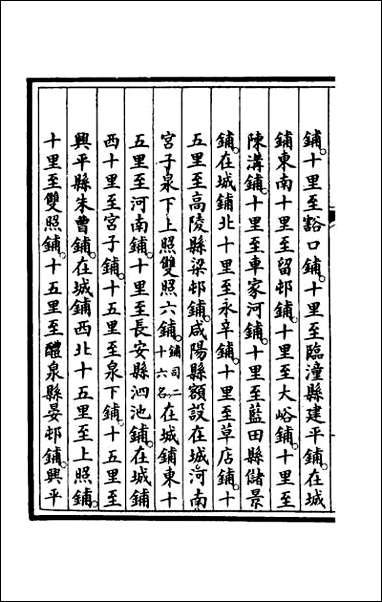 鋪十里至豁口鋪十里至臨潼縣建平鋪在城
鋪東南十里至留邨鋪十里至大峪鋪十里至
陳溝鋪十里至車家河鋪十里至藍田縣儲景
鋪在城鋪北十里至永辛鋪十里至草店鋪十
五里至高陵縣梁邨鋪咸陽縣額設在城河南
宮子泉下上照雙照六鋪鋪司二十六名在城鋪東十
五里至河南鋪十里至長安縣泗池鋪在城鋪
西十里至宮子鋪十五里至泉下鋪十五里至
興平縣朱曹鋪在城鋪西北十五里至上照鋪
十里至雙照鋪十五里至醴泉縣晏邨鋪興平